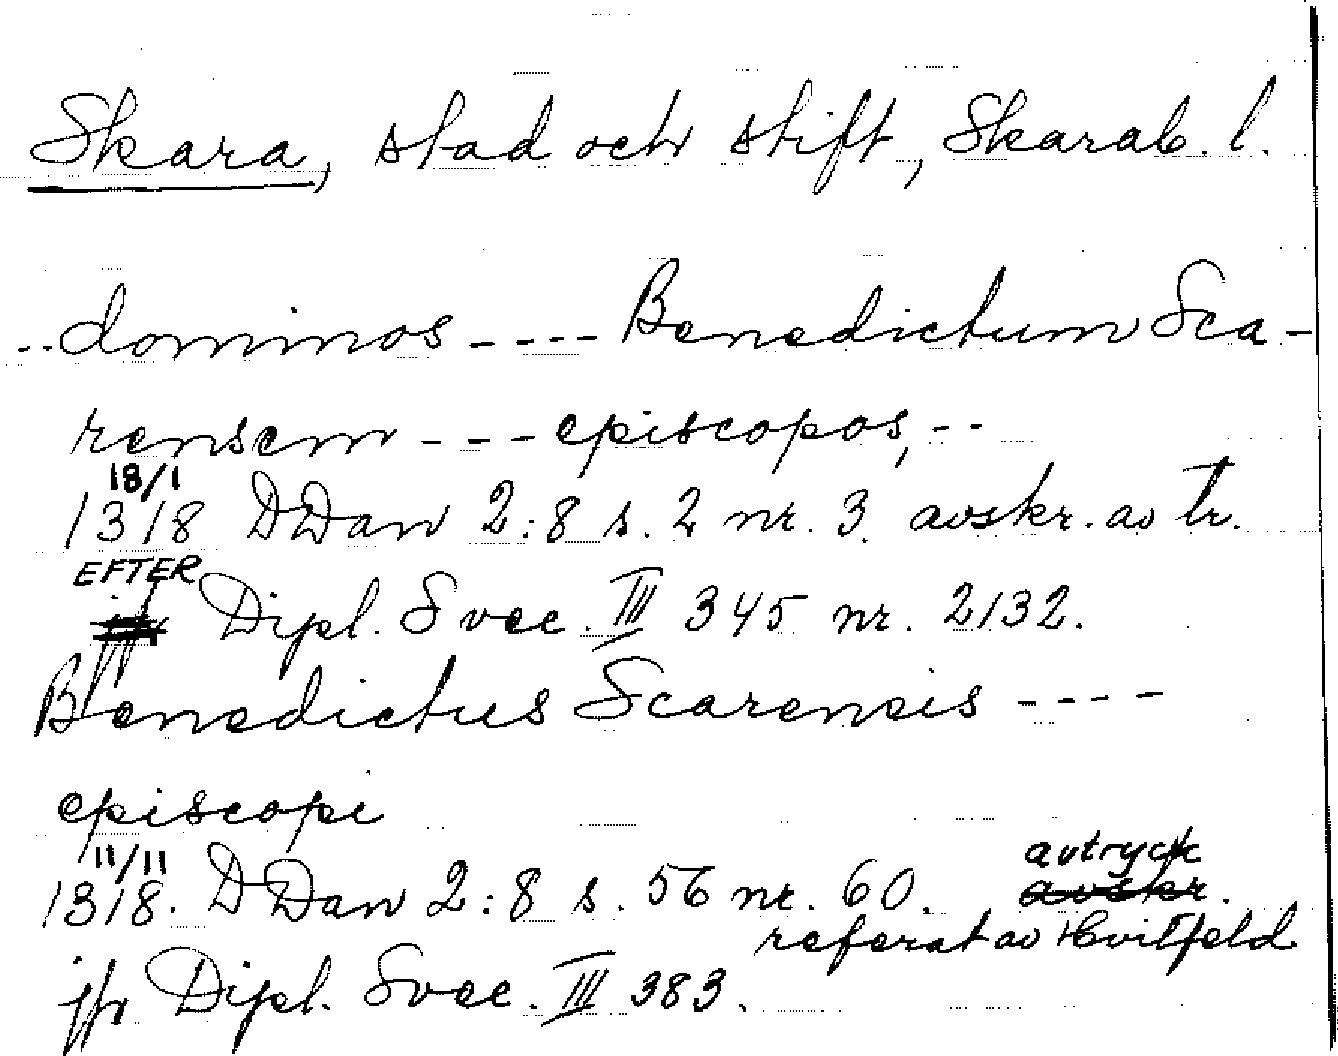 Skara, stad och stift, Skarab. l.
..dominos ---- Benedictum Sca-
rensem --- episcopos, --
18/1
1318 DDan 2:8 s. 2 nr. 3 avskr. av tr.
EFTER
Dipl. Svec. III 345 nr. 2132.
Benedictus Scarensis ----
episcopi
11/11 avtryck
1318. DDan 2:8 s. 56 nr. 60. avskr.
referat av Hvitfeld
jfr Dipl. Svec. III 383.